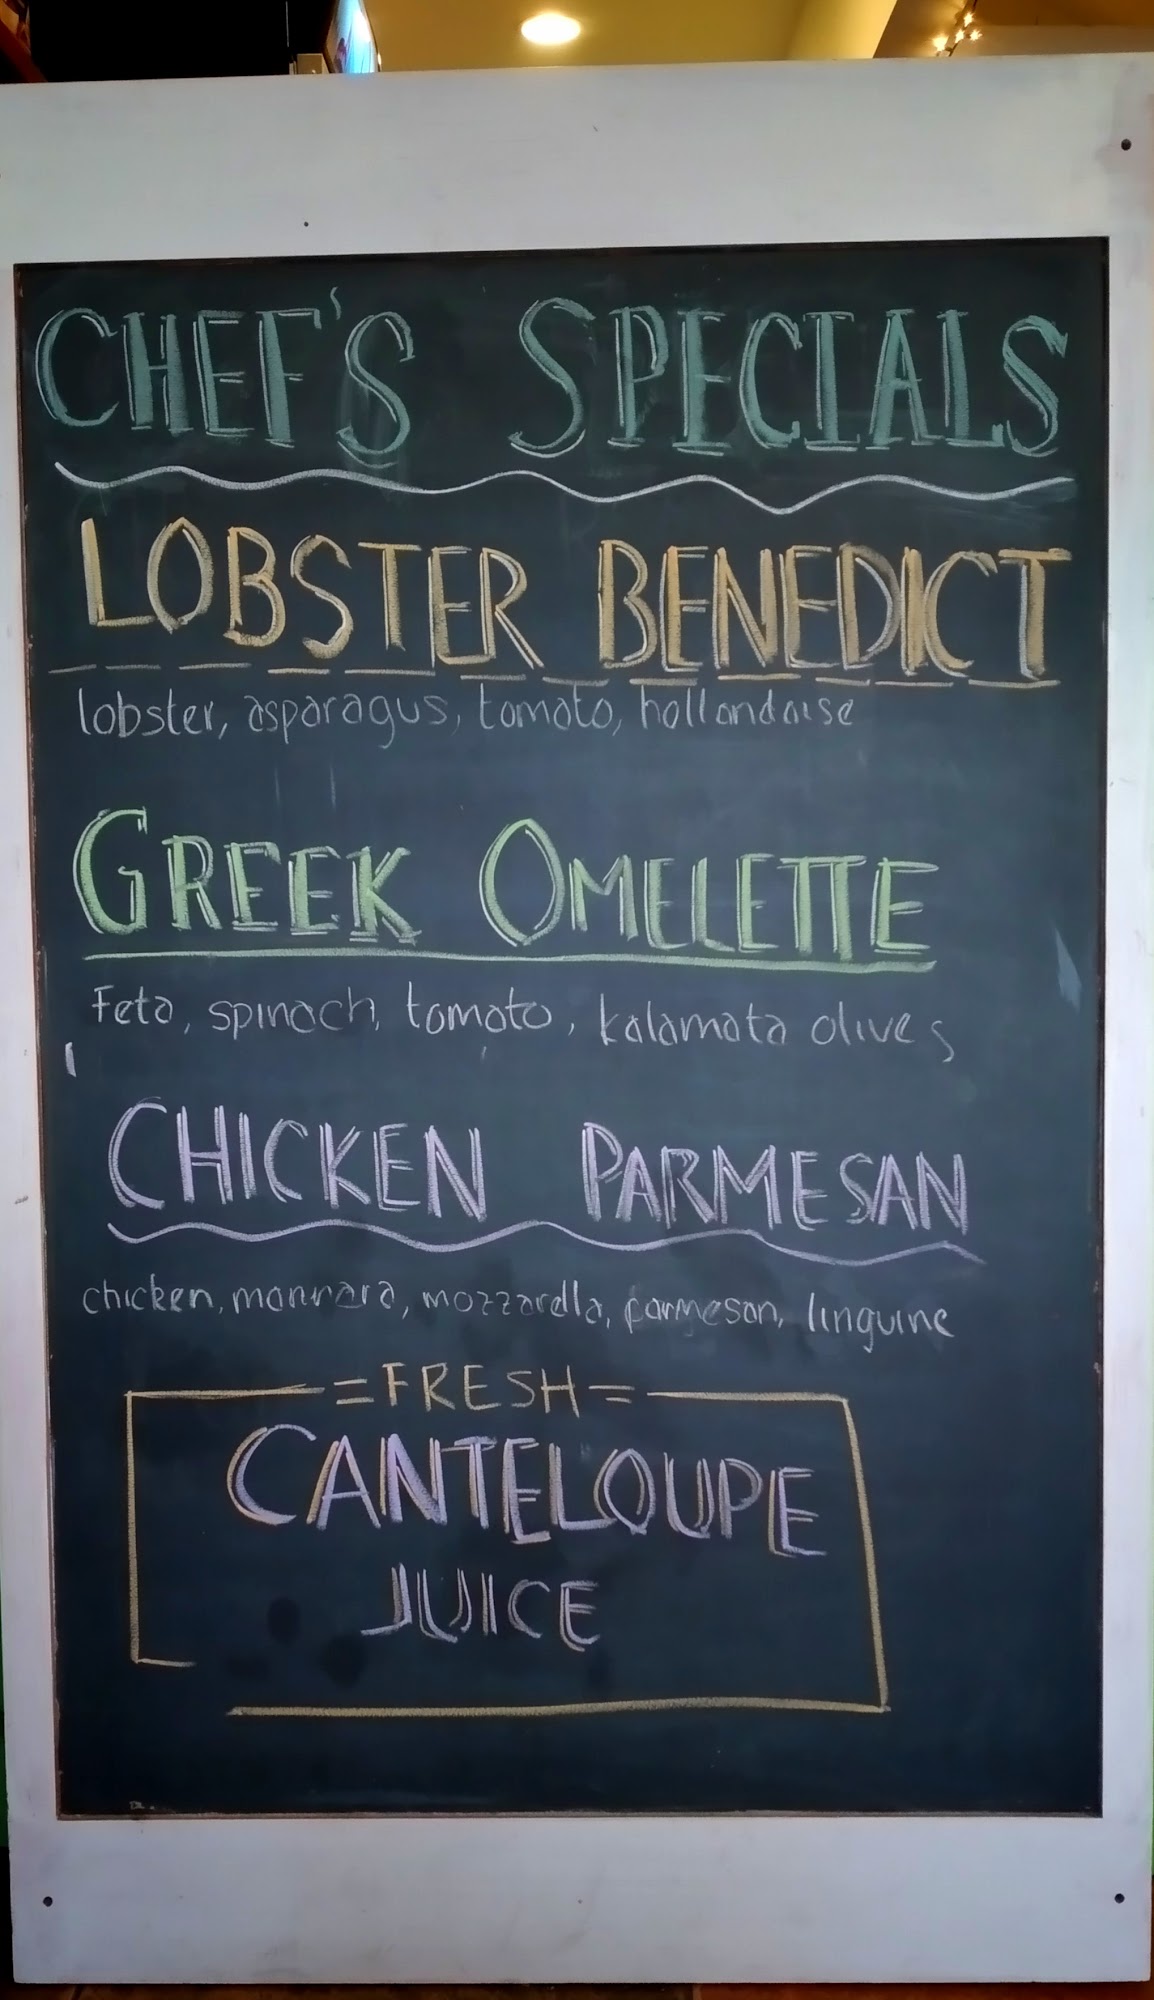 CHEF'S SPECIALS
LOBSTER BENEDICT
lobster, asparagus, tomato, hollandaise
GREEK OMELETTE
Feta, spinach, tomato, kalamata olives
CHICKEN PARMESAN
chicken, marinara, mozzarella, parmesan, linguine
=FRESH=
CANTELOUPE
JUICE